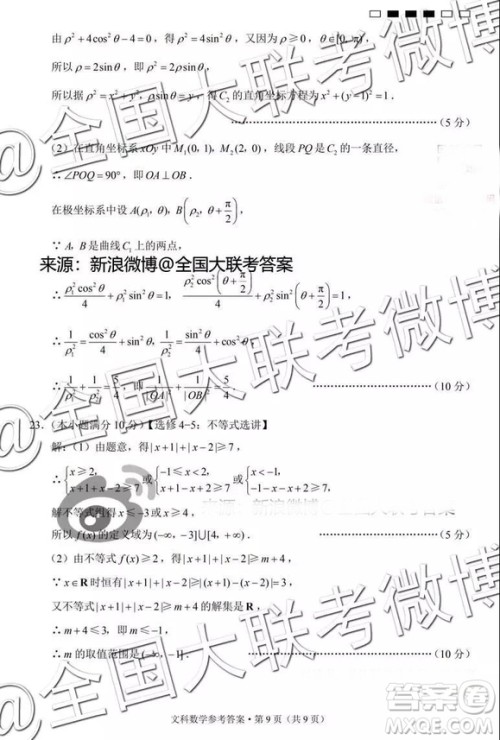 由 ρ²+4cos²θ-4=0，得ρ²=4sin²θ，又因为ρ≥0，θ∈[0, π)，
所以 ρ=2sinθ，即ρ²=2ρsinθ，
所以据 ρ²=x²+y²，ρsinθ=y，得C₂的直角坐标方程为x²+(y-1)²=1．
（5 分）
（2）在直角坐标系xOy中M₁(0, 1)，M₂(2, 0)，线段PQ是C₂的一条直径，
∴∠POQ=90°，即OA⊥OB．
在极坐标系中设A(ρ₁, θ)，B(ρ₂, θ+π/2)，
∵A，B是曲线C₁上的两点，
来源：新浪微博@全国大联考答案
∴ρ₁²cos²θ/4+ρ₁²sin²θ=1，ρ₂²cos²(θ+π/2)/4+ρ₂²sin²(θ+π/2)=1，
∴1/ρ₁²=cos²θ/4+sin²θ，1/ρ₂²=sin²θ/4+cos²θ，
∴1/ρ₁²+1/ρ₂²=5/4，即1/|OA|²+1/|OB|²=5/4．
（10 分）
23.（本小题满分10分）【选修4-5：不等式选讲】
解：（1）由题意，得|x+1|+|x-2|≥7，
∴{x≥2, x+1+x-2≥7 或{-1≤x<2, x+1-x+2≥7 或{x<-1,
解不等式组得x≤-3或x≥4，
所以 f(x)的定义域为(-∞, -3]∪[4, +∞)．
（5 分）
（2）由不等式 f(x)≥2，得|x+1|+|x-2|≥m+4，
∵x∈R时恒有|x+1|+|x-2|≥|(x+1)-(x-2)|=3，
又不等式|x+1|+|x-2|≥m+4的解集是R，
∴m+4≤3，即m≤-1，
∴m的取值范围是(-∞, -1]．
（10 分）
文科数学参考答案·第 9 页（共 9 页）
@全国大联考微博
@全国大联考微博
@全国大联考微博
答案圈
MXQE.COM